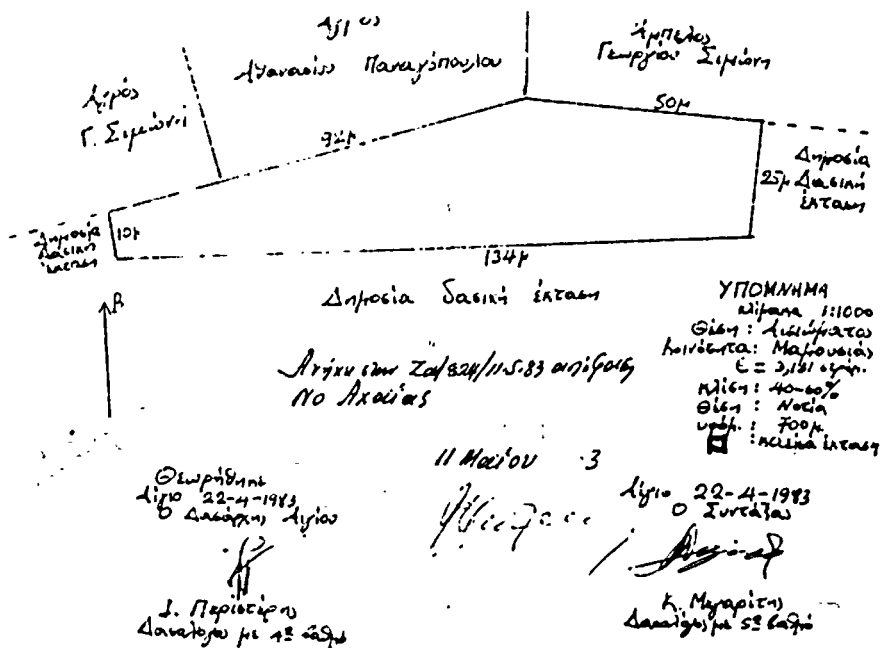 Αγρός
Αθανασίου Παναγόπουλου
Άμπελος
Γεωργίου Σιμώνη
Αγρός
Γ. Σιμώνη
92μ
50μ
25μ
Δημοσία
Δασική
έκταση
10μ
Δημοσία
Δασική
έκταση
134μ
Δημοσία δασική έκταση
Β
ΥΠΟΜΝΗΜΑ
κλίμακα 1:1000
Θέση :
Κοινότητα: Μαμουσιάς
Ε =
κλίση : 40-60%
Θέση : Νοτία
υψόμ. : 700μ
: έκταση
Ανήκει στην 11-5-83 απόφαση
Νο Αχαΐας
11 Μαΐου 3
Θεωρήθηκε
Αίγιο 22-4-1983
Ο Δασάρχης Αιγίου
Περιστέρης
Δασολόγος με 4º βαθμό
Αίγιο 22-4-1983
Ο Συντάξας
Κ. Μεγαρίτης
Δασολόγος με 5º βαθμό